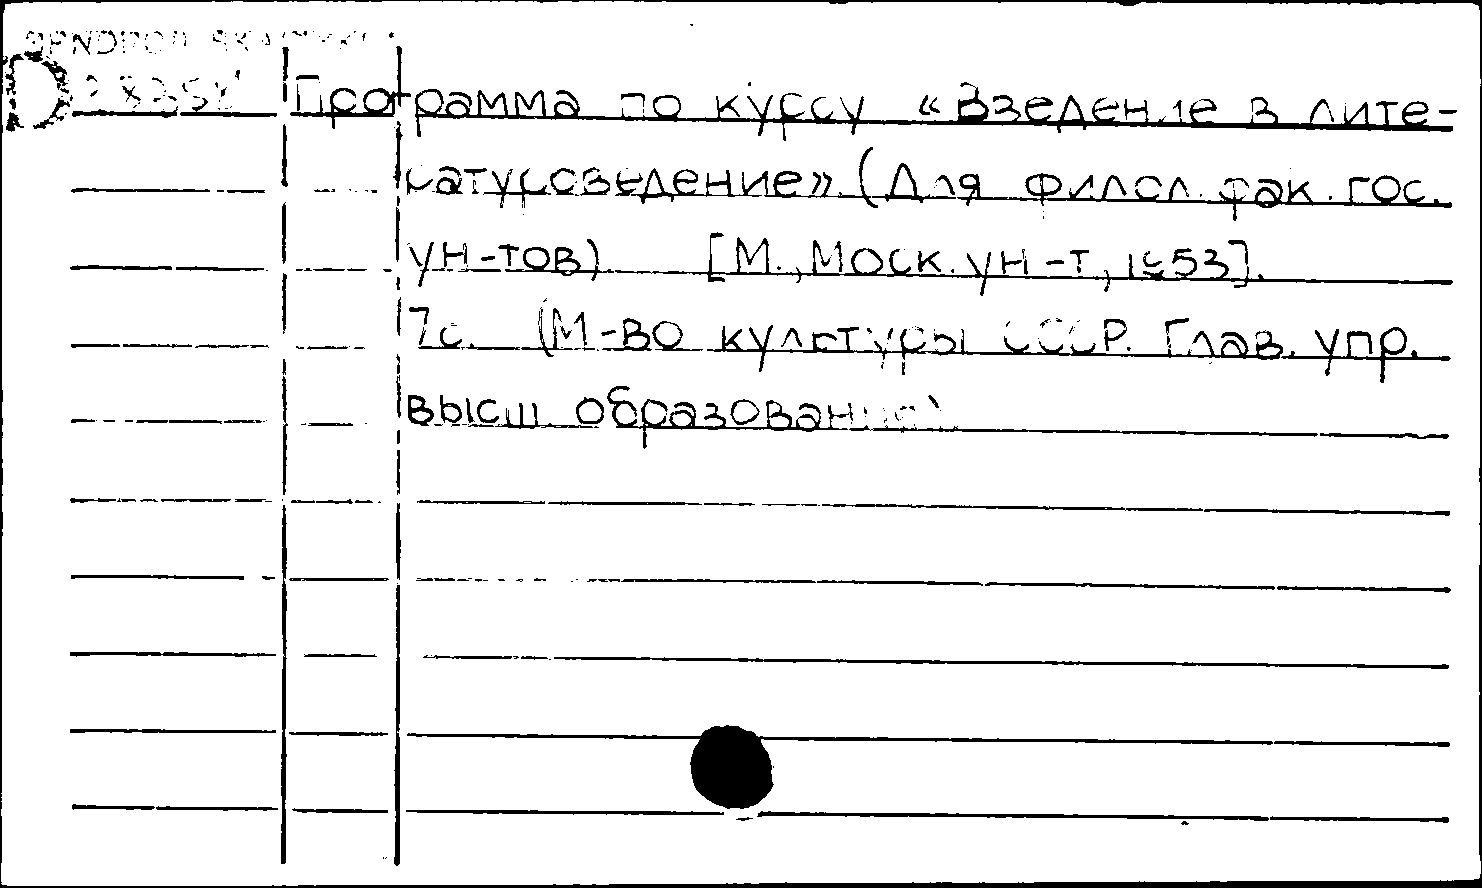 Программа по курсу «Введение в лите-
ратуроведение» (Для филол. фак. гос.
ун-тов) [М., Моск. ун-т, 1953].
7с. (М-во культуры СССР. Глав. упр.
высш. образования).